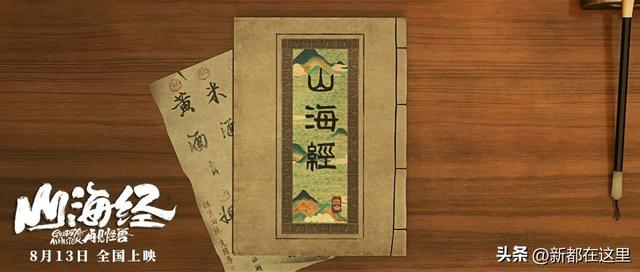 山海經
黄米
酒酒
山海经
GOODBYE MONSTER 再见怪兽
8月13日 全国上映
头条 @新都在这里